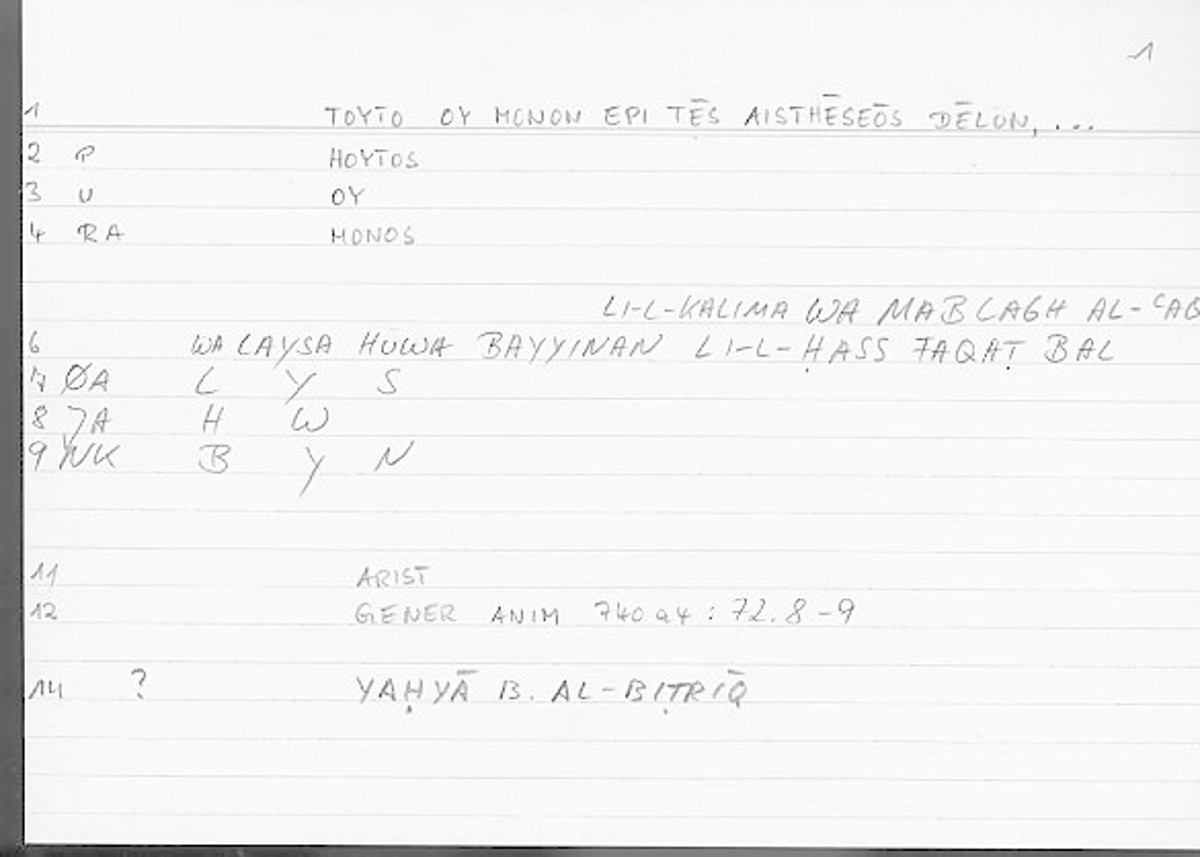 1
1 TOYTO OY MONON EPI TĒS AISTHĒSEŌS DĒLON, ...
2 P HOYTOS
3 U OY
4 RA MONOS
LI-L-KALIMA WA MABLAGH AL-ʿAQ
6 WA LAYSA HUWA BAYYINAN LI-L-ḤASS FAQAṬ BAL
7 ØA L Y S
8 JA H W
9 NK B Y N
11 ARIST
12 GENER ANIM 740a4 : 72.8-9
14 ? YAḤYĀ B. AL-BIṬRĪQ